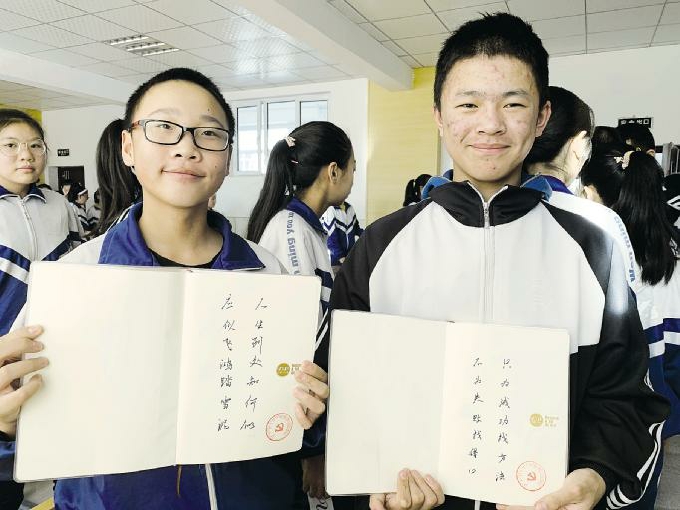 人生到处知何似
应似飞鸿踏雪泥
只为成功找方法
不为失败找借口
安全出口
ming you